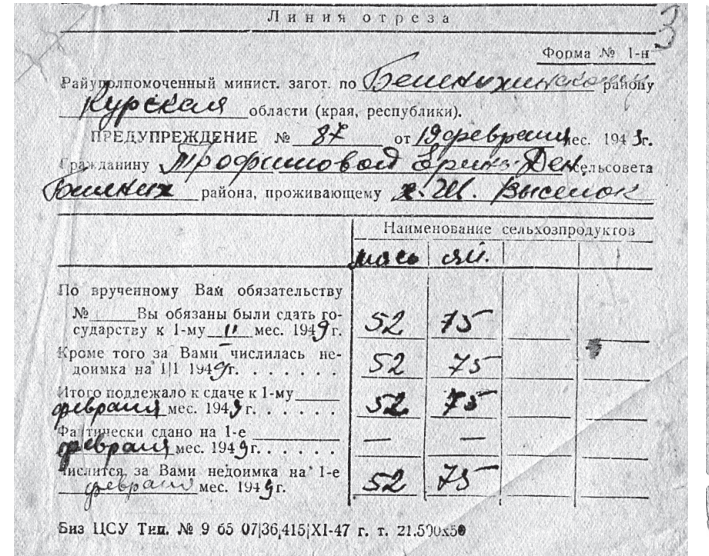 Линия отреза
3
Форма № 1-н
Райуполномоченный минист. загот. по району
Курская области (края, республики).
ПРЕДУПРЕЖДЕНИЕ № 87 от 19 февраля мес. 1949г.
Гражданину Трофимовой Ден. сельсовета
района, проживающему х. Ш. Выселок
Наименование сельхозпродуктов
мясо яй.
По врученному Вам обязательству
№ Вы обязаны были сдать го-
сударству к 1-му II мес. 1949г. 52 75
Кроме того за Вами числилась не-
доимка на 1|1 1949г. . . . . . . 52 75
Итого подлежало к сдаче к 1-му
февраля мес. 1949г. . . . . . 52 75
Фактически сдано на 1-е
февраля мес. 1949г. . . . . . — —
Числится за Вами недоимка на 1-е
февраля мес. 1949г. 52 75
Биз ЦСУ Тип. № 9 65 07|36,415|XI-47 г. т. 21.500х50